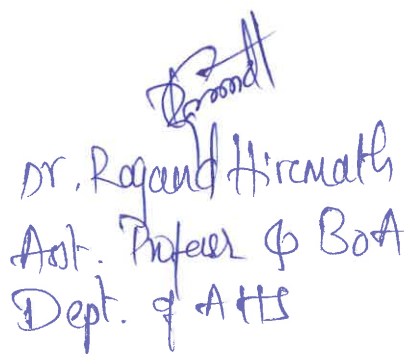 Dr. Ragand Hiremath
Asst. Professor & BoA
Dept. of AHS